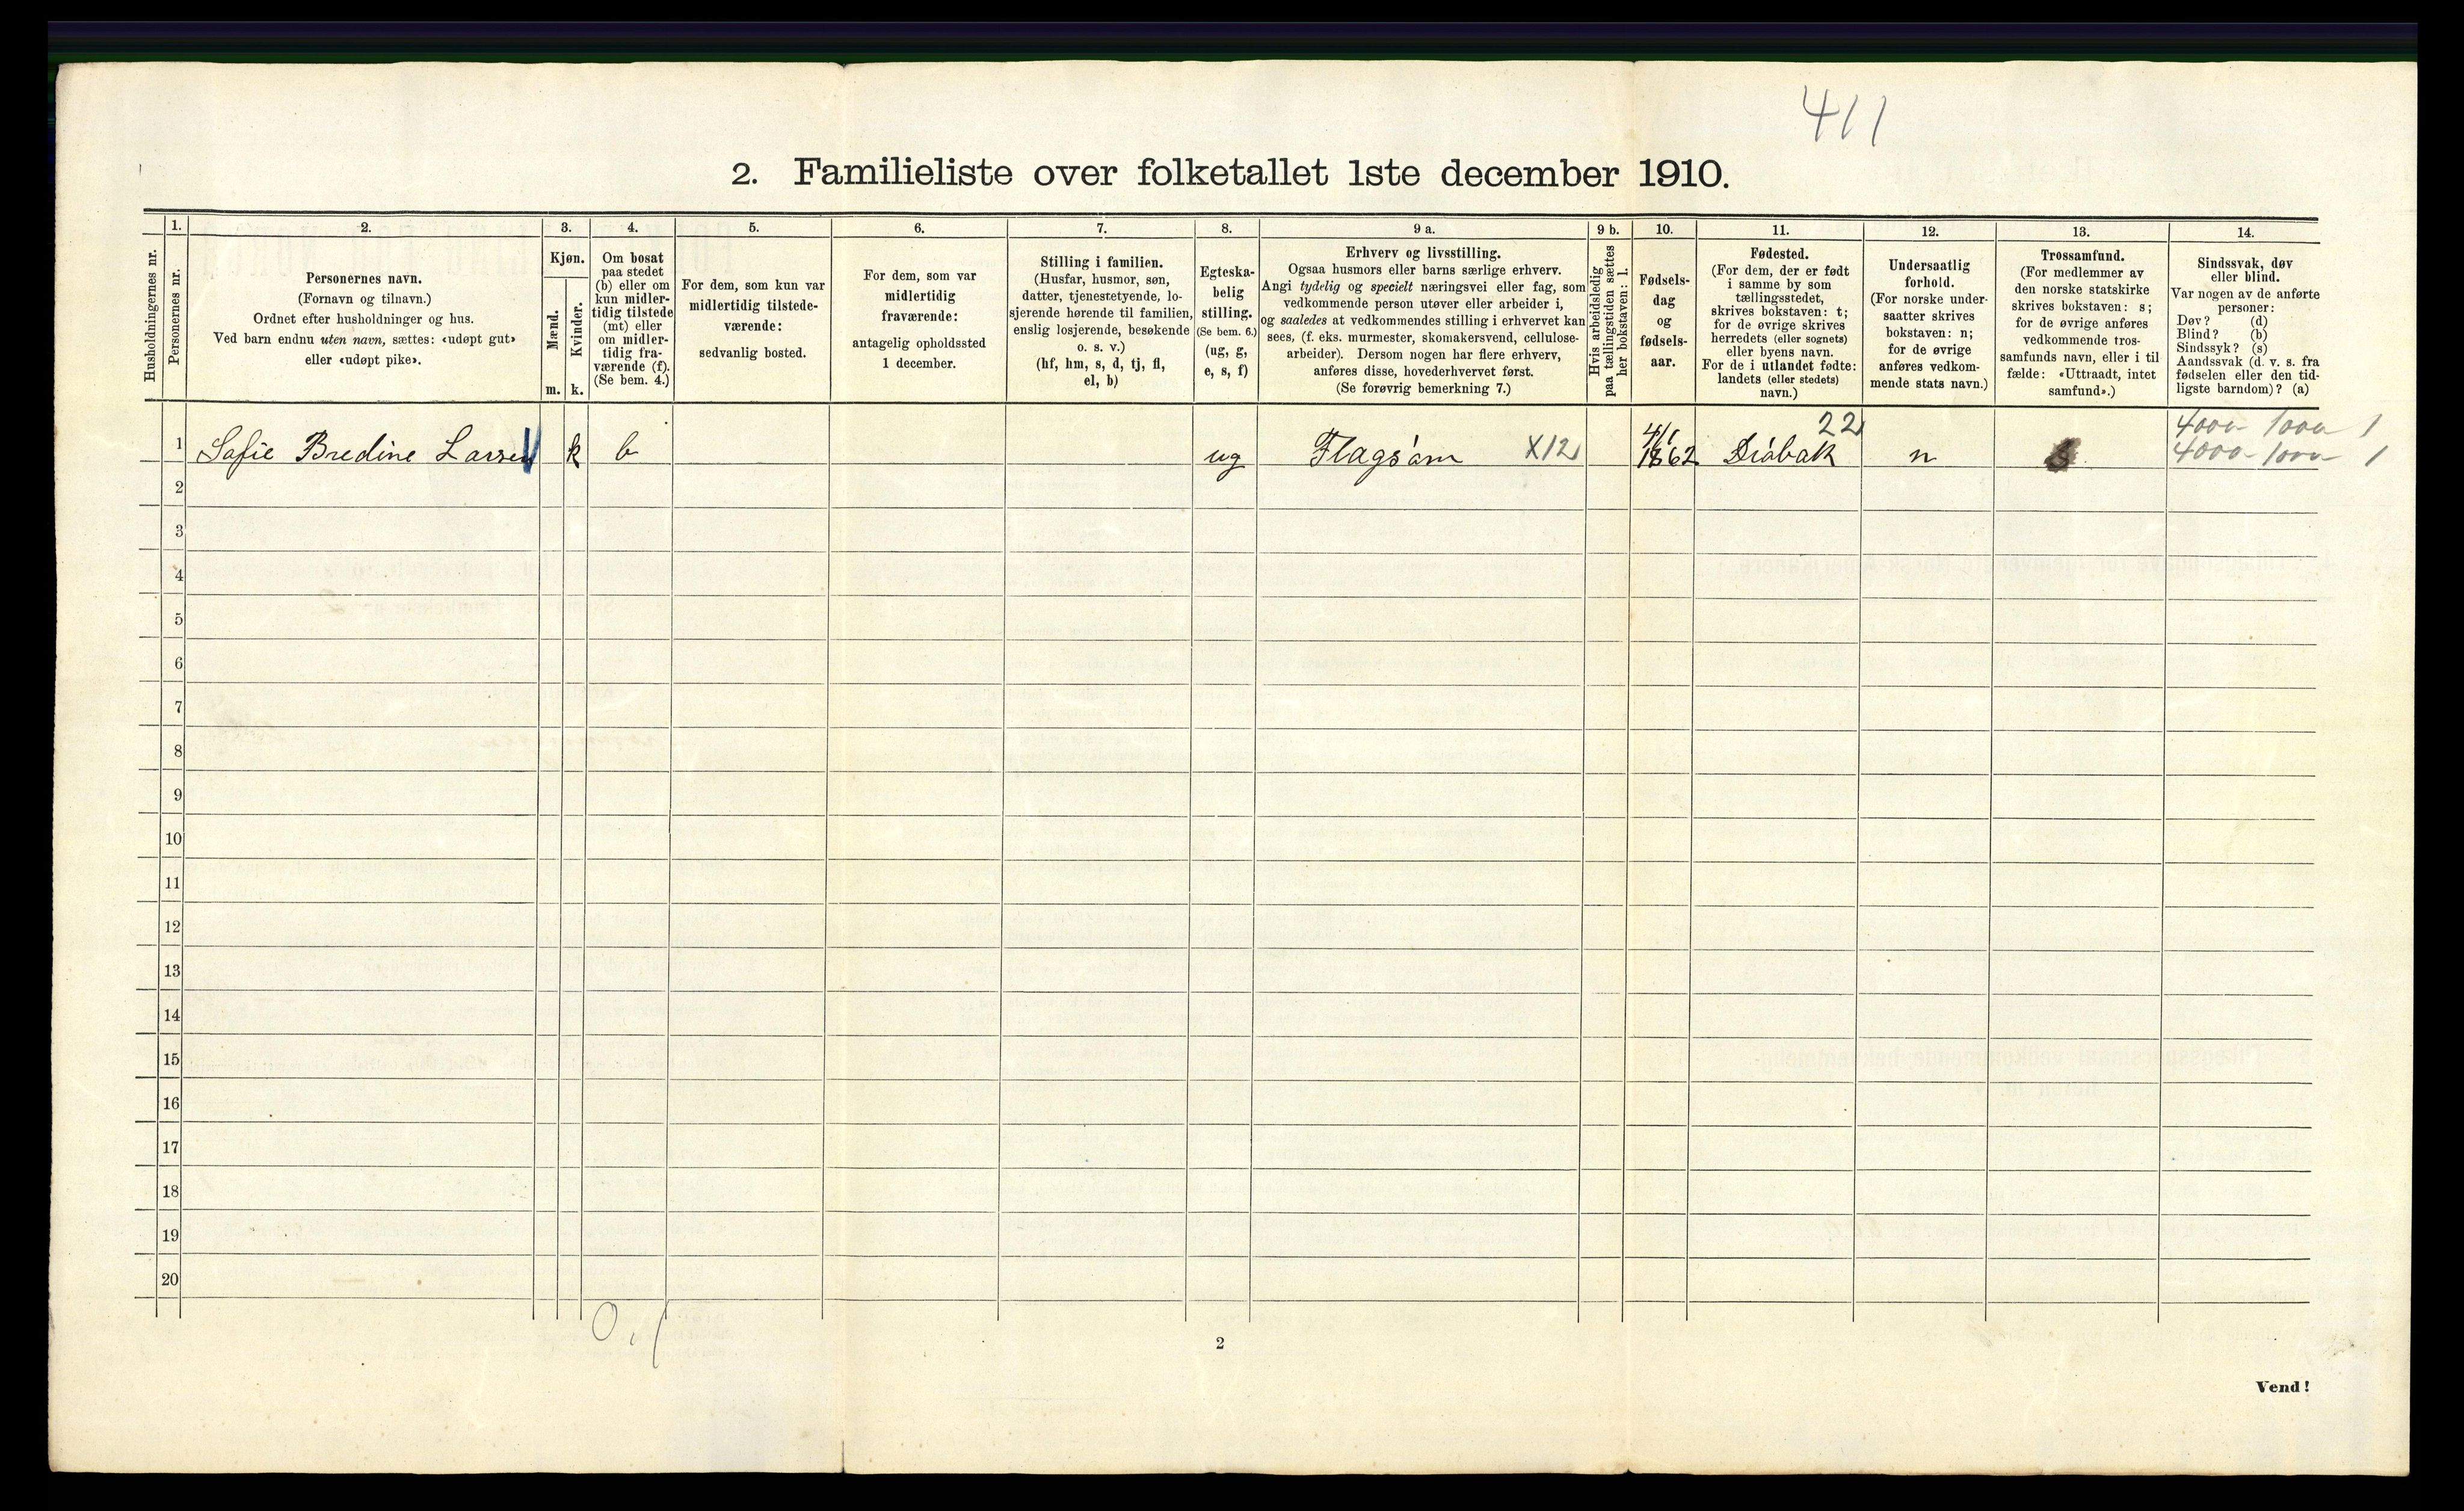 411
2. Familieliste over folketallet 1ste december 1910.
Husholdningernes nr.
1.
Personernes nr.
2.
Personernes navn.
(Fornavn og tilnavn.)
Ordnet efter husholdninger og hus.
Ved barn endnu uten navn, sættes: «udøpt gut»
eller «udøpt pike».
3.
Kjøn.
Mænd.
m.
Kvinder.
k.
4.
Om bosat
paa stedet
(b) eller om
kun midler-
tidig tilstede
(mt) eller
om midler-
tidig fra-
værende (f).
(Se bem. 4.)
5.
For dem, som kun var
midlertidig tilstede-
værende:
sedvanlig bosted.
6.
For dem, som var
midlertidig
fraværende:
antagelig opholdssted
1 december.
7.
Stilling i familien.
(Husfar, husmor, søn,
datter, tjenestetyende, lo-
sjerende hørende til familien,
enslig losjerende, besøkende
o. s. v.)
(hf, hm, s, d, tj, fl,
el, b)
8.
Egteska-
belig
stilling.
(Se bem. 6.)
(ug, g,
e, s, f)
9 a.
Erhverv og livsstilling.
Ogsaa husmors eller barns særlige erhverv.
Angi tydelig og specielt næringsvei eller fag, som
vedkommende person utøver eller arbeider i,
og saaledes at vedkommendes stilling i erhvervet kan
sees, (f. eks. murmester, skomakersvend, cellulose-
arbeider). Dersom nogen har flere erhverv,
anføres disse, hovederhvervet først.
(Se forøvrig bemerkning 7.)
9 b.
Hvis arbeidsledig
paa tællingstiden sættes
her bokstaven: l.
10.
Fødsels-
dag
og
fødsels-
aar.
11.
Fødested.
(For dem, der er født
i samme by som
tællingsstedet,
skrives bokstaven: t;
for de øvrige skrives
herredets (eller sognets)
eller byens navn.
For de i utlandet fødte:
landets (eller stedets)
navn.)
12.
Undersaatlig
forhold.
(For norske under-
saatter skrives
bokstaven: n;
for de øvrige
anføres vedkom-
mende stats navn.)
13.
Trossamfund.
(For medlemmer av
den norske statskirke
skrives bokstaven: s;
for de øvrige anføres
vedkommende tros-
samfunds navn, eller i til
fælde: «Uttraadt, intet
samfund».)
14.
Sindssvak, døv
eller blind.
Var nogen av de anførte
personer:
Døv? (d)
Blind? (b)
Sindssyk? (s)
Aandssvak (d. v. s. fra
fødselen eller den tid-
ligste barndom)? (a)
22
4000- 1000 1
1 Safie Bredine Larsen k b ug Flagsøm X12 4/1 1862 Drøbak n s 4000- 1000- 1
2
3
4
5
6
7
8
9
10
11
12
13
14
15
16
17
18
19
20
0.1
2
Vend!